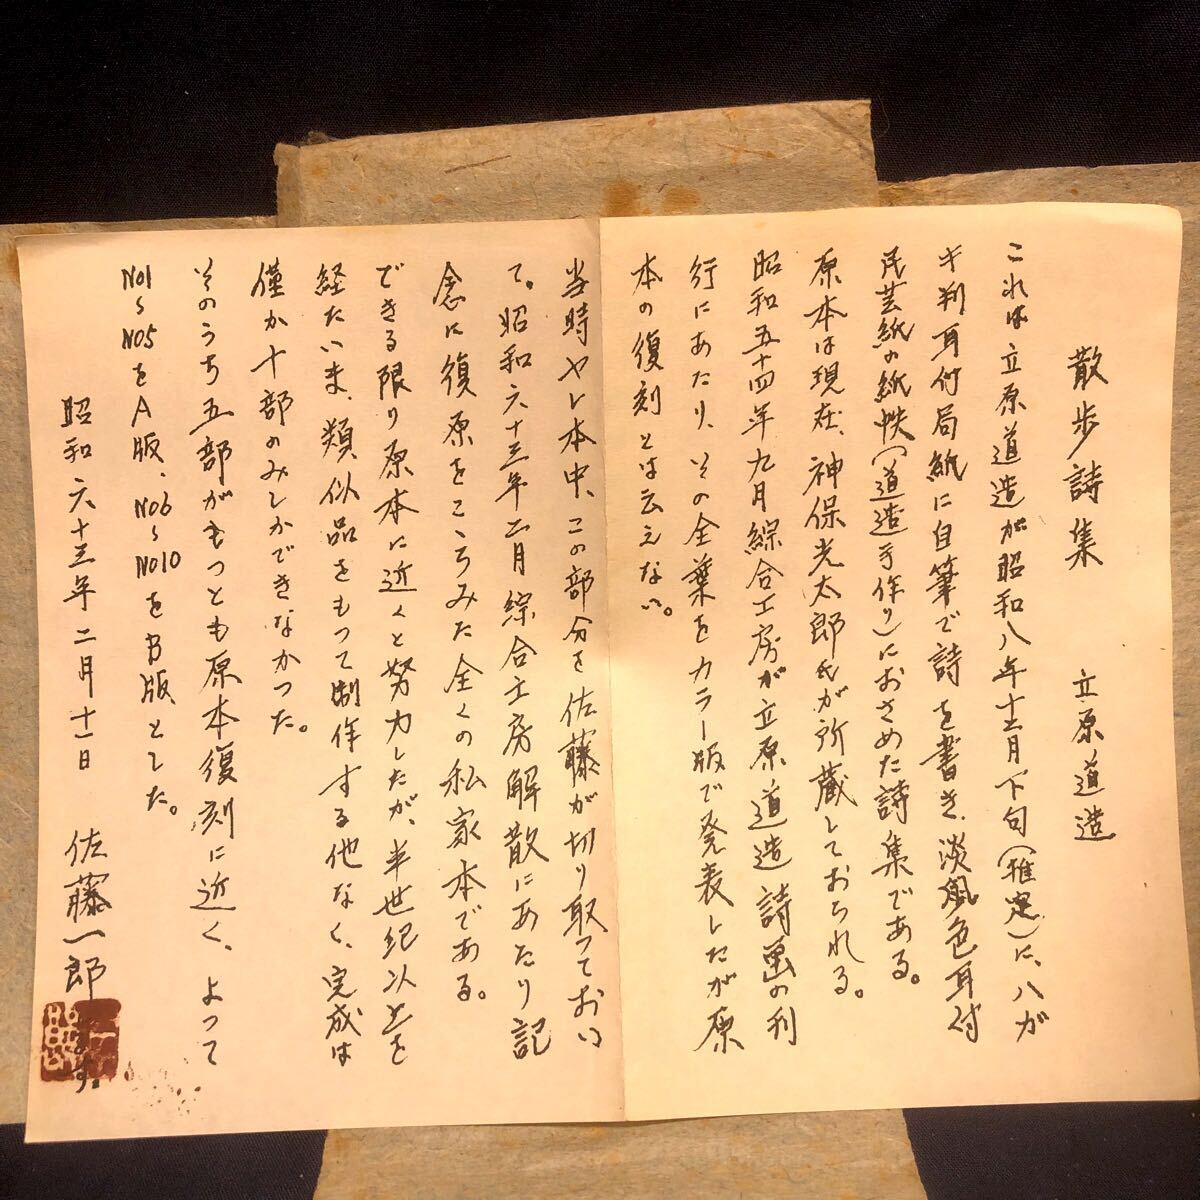 散歩詩集　立原道造
これは立原道造が昭和八年十二月下旬（推定）に、ハガ
キ判耳付局紙に自筆で詩を書き、淡風色耳付
民芸紙の紙帙（道造手作り）におさめた詩集である。
原本は現在、神保光太郎氏が所蔵しておられる。
昭和五十四年九月綜合工房が立原道造詩画の刊
行にあたり、その全葉をカラー版で発表したが原
本の復刻とは云えない。
当時ヤレ本中、この部分を佐藤が切り取っておい
て。昭和六十三年二月綜合工房解散にあたり記
念に復原をこゝろみた全くの私家本である。
できる限り原本に近くと努力したが、半世紀以上を
経たいま、類似品をもって制作する他なく、完成は
僅か十部のみしかできなかった。
そのうち五部がもっとも原本復刻に近く、よって
No1〜No5をA版、No6〜No10をB版とした。
昭和六十三年二月十一日　佐藤一郎